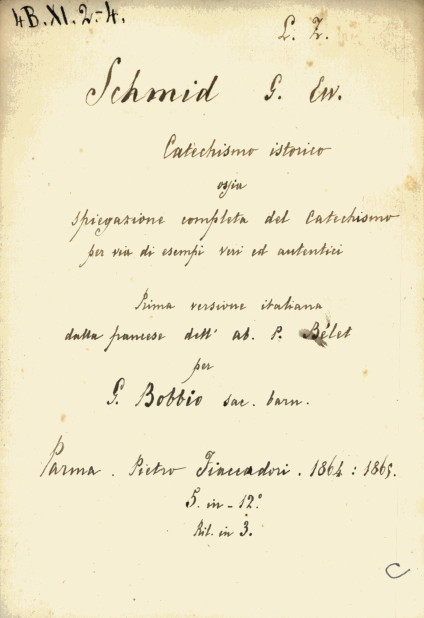 4B.XI.2-4.
L. Z.
Schmid G. Ew.
Catechismo istorico
ossia
spiegazione completa del Catechismo
per via di esempi veri ed autentici
Prima versione italiana
dalla francese dell' ab. P. Bélet
per
G. Bobbio sac. barn.
Parma. Pietro Fiaccadori. 1864:1865.
5. in-12°
Ril. in 3.
C